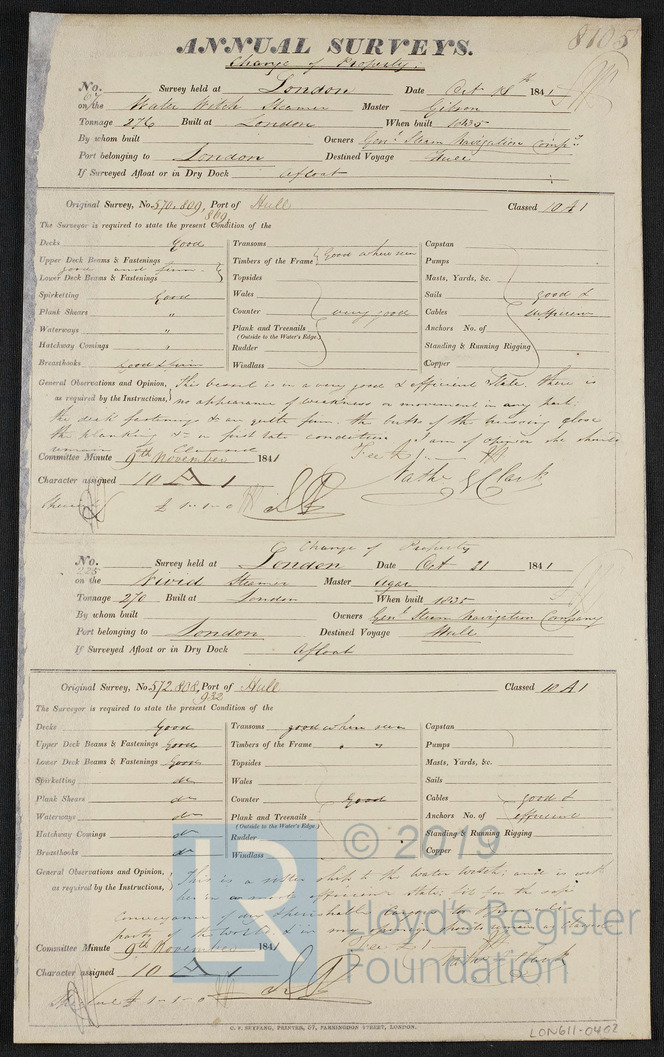 8105
ANNUAL SURVEYS.
Change of Property.
No. 67 Survey held at London Date Oct 18th 1841
on the Water Witch Steamer Master Gibson
Tonnage 276 Built at London When built 1835
By whom built Owners Genl. Steam Navigation Compy.
Port belonging to London Destined Voyage Hull
If Surveyed Afloat or in Dry Dock Afloat
Original Survey, No. 570. 809, 869 Port of Hull Classed 10 A 1
The Surveyor is required to state the present Condition of the
Decks Good
Upper Deck Beams & Fastenings
good and firm.
Lower Deck Beams & Fastenings
Spirketting Good
Plank Shears "
Waterways "
Hatchway Comings "
Breasthooks Good & firm
Transoms
Timbers of the Frame good where seen
Topsides
Wales
Counter very good
Plank and Treenails
(Outside to the Water's Edge.)
Rudder
Windlass
Capstan
Pumps
Masts, Yards, &c.
Sails good &
Cables
Anchors No. of
Standing & Running Rigging
Copper
General Observations and Opinion, This vessel is in a very good & efficient state. there is
as required by the Instructions, no appearance of weakness or movement in any part.
the deck fastenings & are quite firm. the butts of the close
the planking & in first rate condition I am of opinion she should
remain as Classed
Committee Minute 9th November 1841
Fee £1
Character assigned 10 A 1
Nathl. G Clark
£ 1-1-0
Change of Property
No. 225 Survey held at London Date Oct 21 1841
on the Vivid Steamer Master Agar
Tonnage 270 Built at London When built 1835
By whom built Owners Genl. Steam Navigation Company
Port belonging to London Destined Voyage Hull
If Surveyed Afloat or in Dry Dock Afloat
Original Survey, No. 572. 808, 932 Port of Hull Classed 10 A 1
The Surveyor is required to state the present Condition of the
Decks Good
Upper Deck Beams & Fastenings Good
Lower Deck Beams & Fastenings Good
Spirketting do
Plank Shears do
Waterways do
Hatchway Comings do
Breasthooks do
Transoms good where seen
Timbers of the Frame " "
Topsides
Wales
Counter Good
Plank and Treenails
(Outside to the Water's Edge.)
Rudder
Windlass
Capstan
Pumps
Masts, Yards, &c.
Sails
Cables good &
Anchors No. of efficient
Standing & Running Rigging
Copper
General Observations and Opinion, This is a sister ship to the Water Witch. and is with
as required by the Instructions, her in a most efficient state. fit for the safe
Conveyance of dry & perishable Cargoes to
parts of the world. & in my opinion should remain as Classed
Committee Minute 9th November 1841
Fee £1
Character assigned 10 A 1
Nathl G Clark
£ 1-1-0
C. F. SEYFANG, PRINTER, 57, FARRINGDON STREET, LONDON.
LON611-0402
LR
© 2019
Lloyd's Register
Foundation